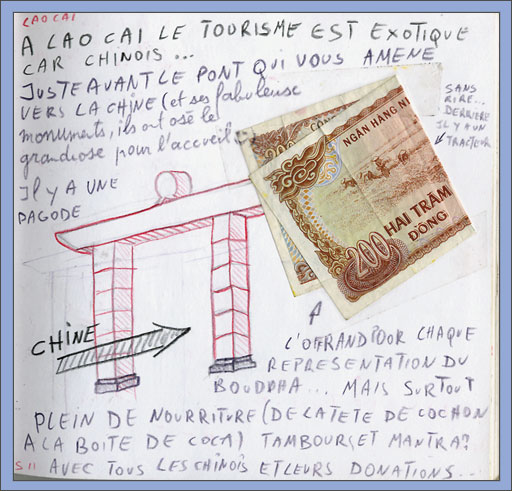 LAO CAI
A LAO CAI LE TOURISME EST EXOTIQUE
CAR CHINOIS ...
JUSTE AVANT LE PONT QUI VOUS AMENE
VERS LA CHINE (et ses fabuleuse
monuments, ils ont osé le
grandiose pour l'accueil
IL Y A UNE
PAGODE
SANS
RIRE...
DERRIERE
IL Y A UN
TRACTEUR
NGÂN HÀNG
HAI TRĂM
ĐỒNG
200
200
CHINE
L'OFFRAND POOR CHAQUE
REPRESENTATION DU
BOUDDHA ... MAIS SURTOUT
PLEIN DE NOURRITURE (DE LA TETE DE COCHON
A LA BOITE DE COCA) TAMBOUR, ET MANTRA?
S 11 AVEC TOUS LES CHINOIS ET LEURS DONATIONS ...